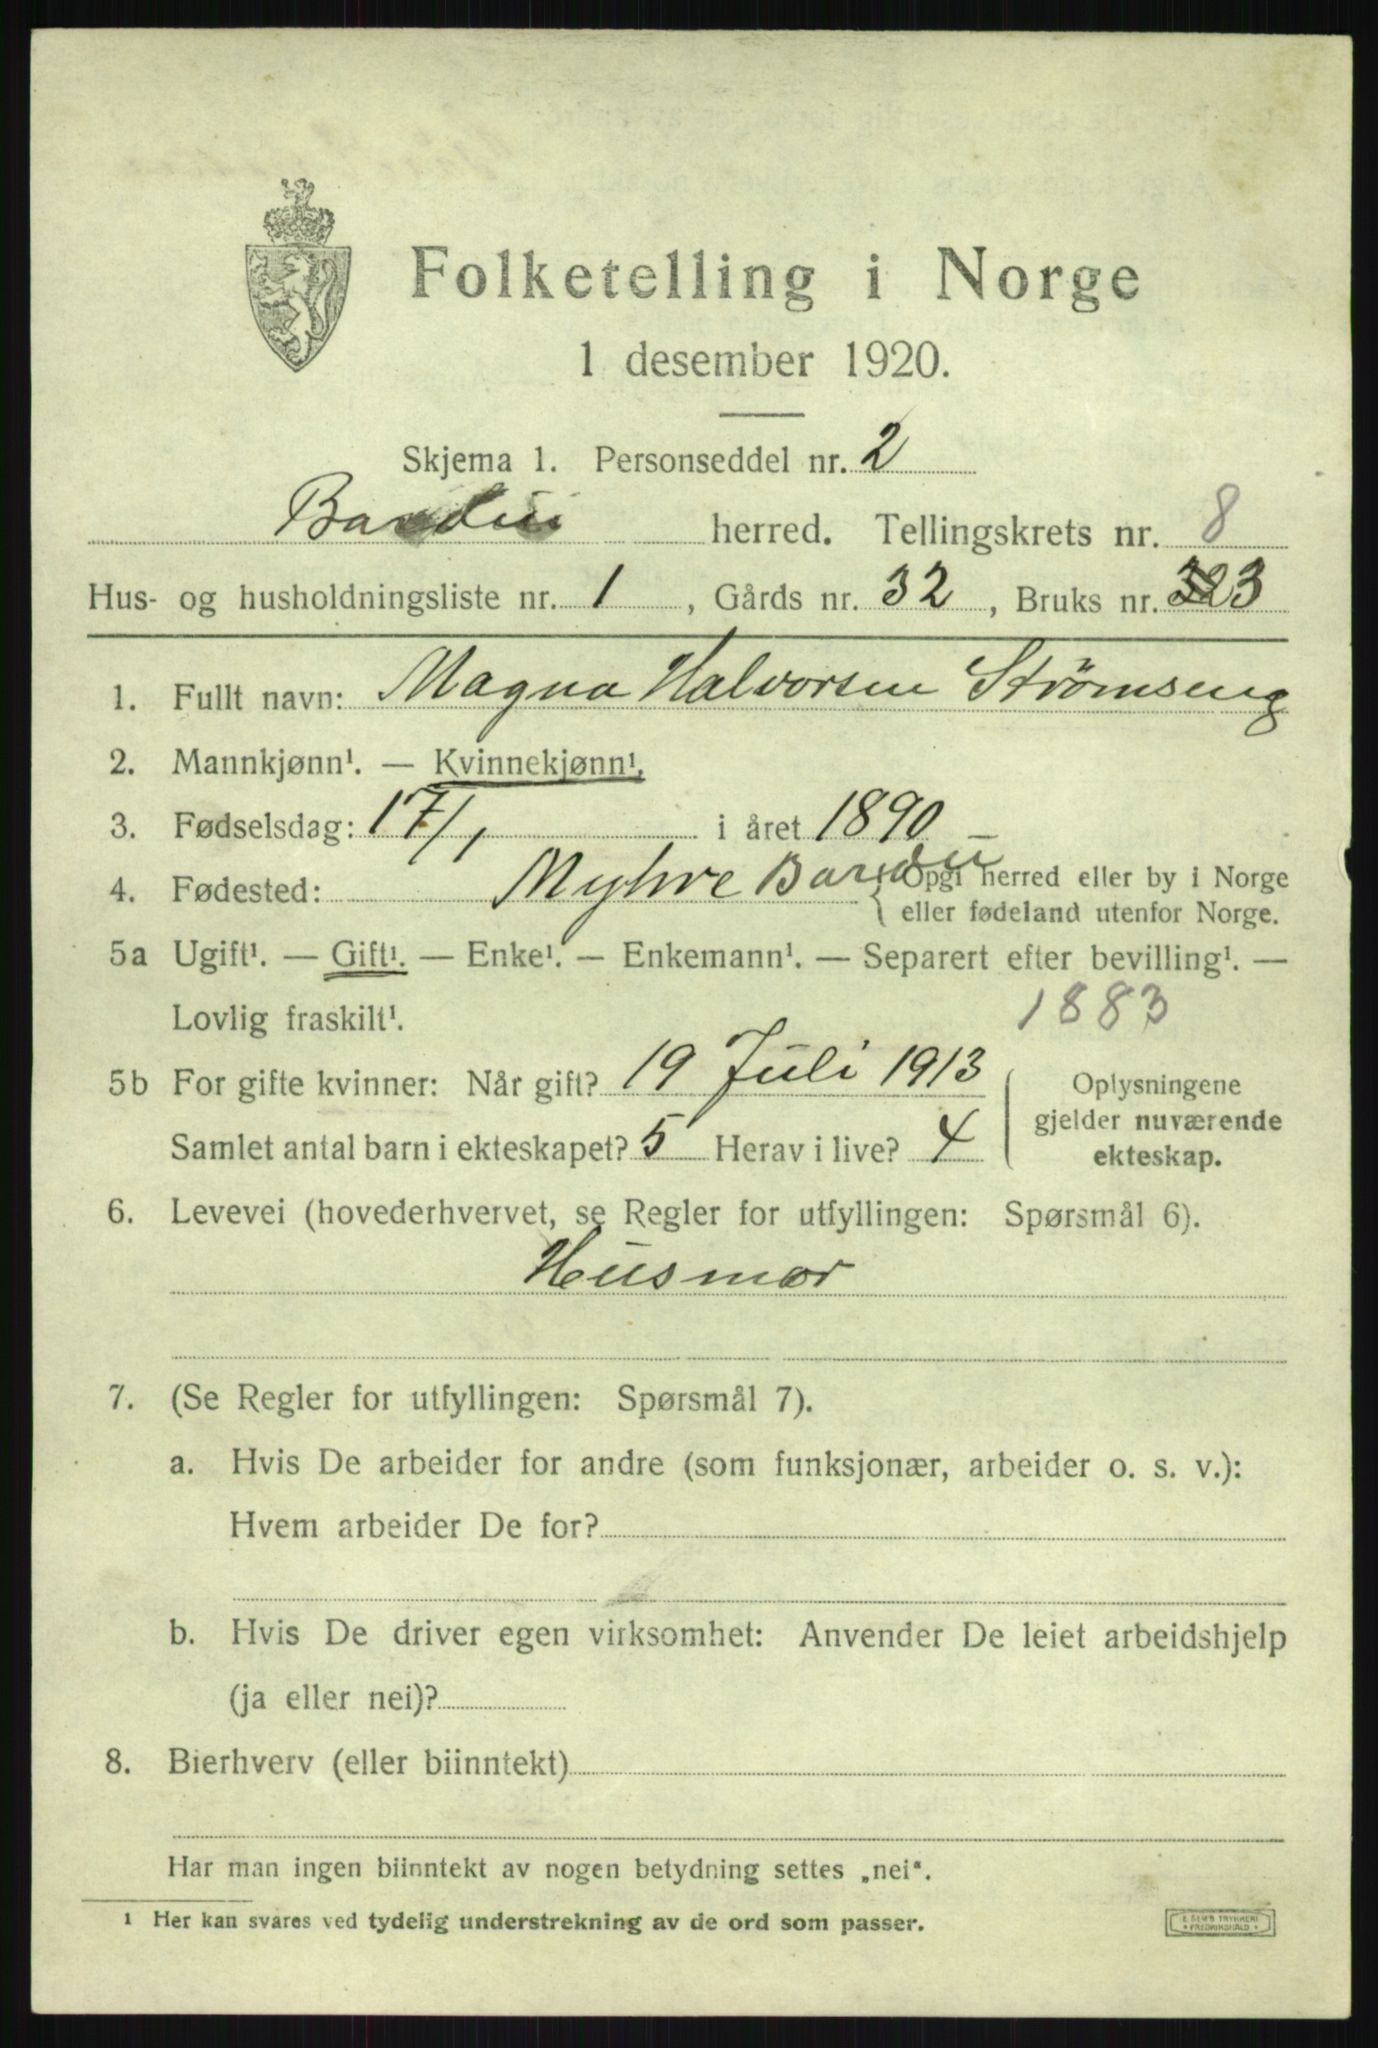 Folketelling i Norge
1 desember 1920.
Skjema 1. Personseddel nr. 2
Bardu herred. Tellingskrets nr. 8
Hus- og husholdningsliste nr. 1, Gårds nr. 32, Bruks nr. 3
1. Fullt navn: Magna Halvorsen Strømseng
2. Mannkjønn¹. — Kvinnekjønn¹.
3. Fødselsdag: 17/1 i året 1890
4. Fødested: Myhre Bardu {Opgi herred eller by i Norge
eller fødeland utenfor Norge.
5a Ugift¹. — Gift¹. — Enke¹. — Enkemann¹. — Separert efter bevilling¹. —
Lovlig fraskilt¹. 1883
5b For gifte kvinner: Når gift? 19 Juli 1913
Samlet antal barn i ekteskapet? 5 Herav i live? 4
Oplysningene
gjelder nuværende
ekteskap.
6. Levevei (hovederhvervet, se Regler for utfyllingen: Spørsmål 6).
Husmor
7. (Se Regler for utfyllingen: Spørsmål 7).
a. Hvis De arbeider for andre (som funksjonær, arbeider o. s. v.):
Hvem arbeider De for?
b. Hvis De driver egen virksomhet: Anvender De leiet arbeidshjelp
(ja eller nei)?
8. Bierhverv (eller biinntekt)
Har man ingen biinntekt av nogen betydning settes „nei“.
¹ Her kan svares ved tydelig understrekning av de ord som passer.
E. SEM'S TRYKKERI
FREDRIKSHALD